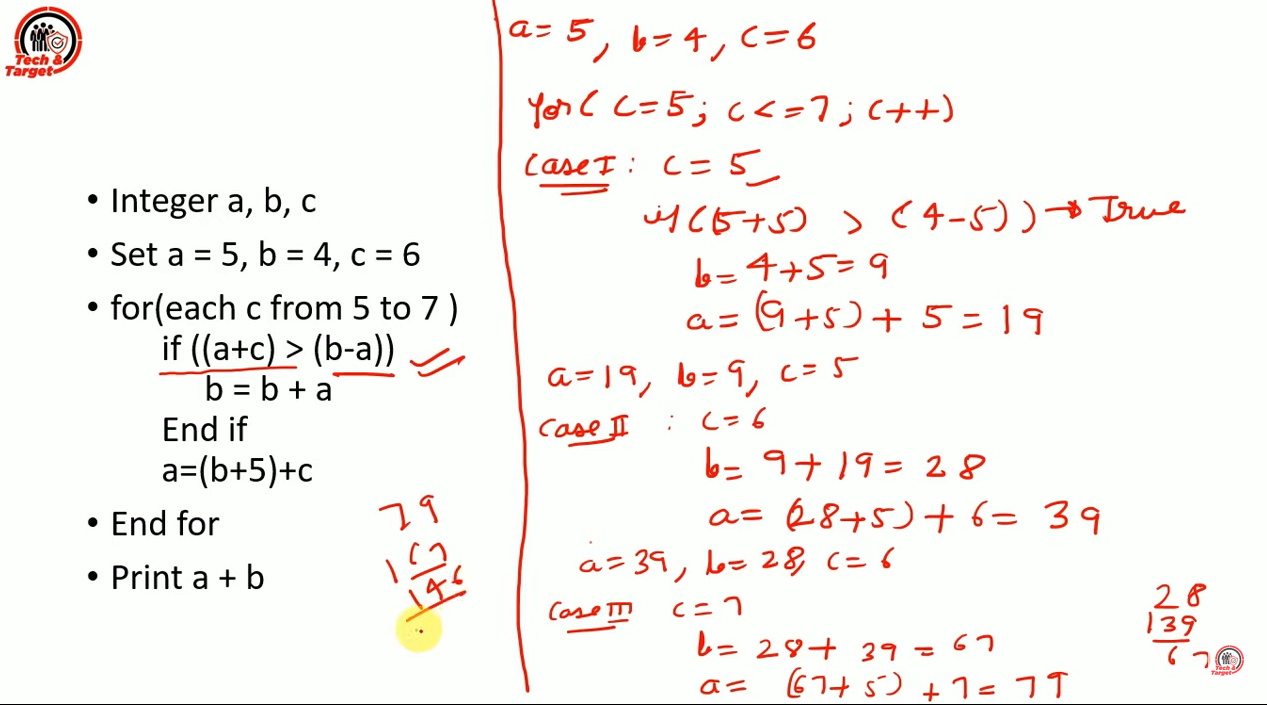 Tech &
Target
• Integer a, b, c
• Set a = 5, b = 4, c = 6
• for(each c from 5 to 7 )
if ((a+c) > (b-a))
b = b + a
End if
a=(b+5)+c
• End for
• Print a + b
79
167
146
a = 5, b = 4, c = 6
for( c=5; c<=7; c++)
Case I : c = 5
if (5+5) > (4-5)) → True
b = 4+5 = 9
a = (9+5) + 5 = 19
a = 19, b = 9, c = 5
Case II : c = 6
b = 9 + 19 = 28
a = (28+5) + 6 = 39
a = 39, b = 28, c = 6
Case III c = 7
b = 28 + 39 = 67
a = (67+5) + 7 = 79
28
139
67
Tech &
Target